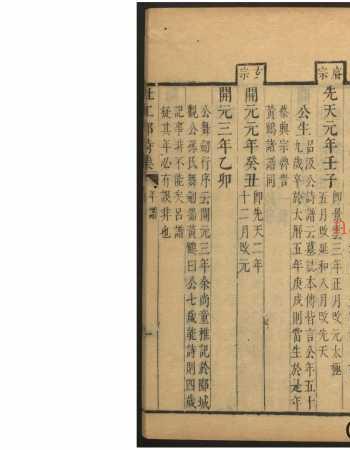 睿宗
先天元年壬子
即景雲三年正月改元太極
五月改延和八月改先天
公生呂汲公詩譜云墓誌本傳皆言公年五十
九歲卒於大曆五年庚戌則當生於是年
蔡興宗魯訔
黃鶴諸譜同
玄宗
開元元年癸丑
即先天二年
十二月改元
開元三年乙卯
公舞劒行序云開元三年余尚童稚記於郾城
觀公孫氏舞劒器黃鶴曰公七歲能詩則四歲
記事非不能矣呂譜
從其年必有誤非也
杜工部詩集
年譜